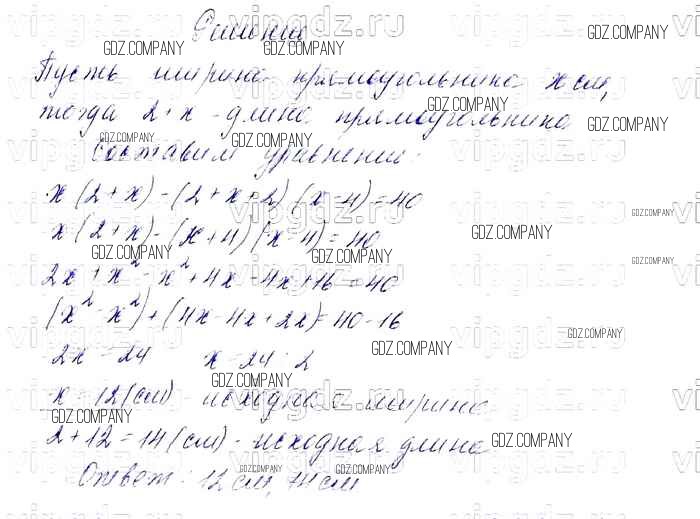 Решение
Пусть ширина прямоугольника x см,
тогда 2+x - длина прямоугольника.
Составим уравнение:
x(2+x)-(2+x+2)(x-4)=40
x(2+x)-(x+4)(x-4)=40
2x+x²-x²+4x-4x+16=40
(x²-x²)+(4x-4x+2x)=40-16
2x=24 x=24:2
x=12(см) - исходная ширина
2+12=14(см) - исходная длина
Ответ: 12см, 14см
vipgdz.ru
GDZ.COMPANY